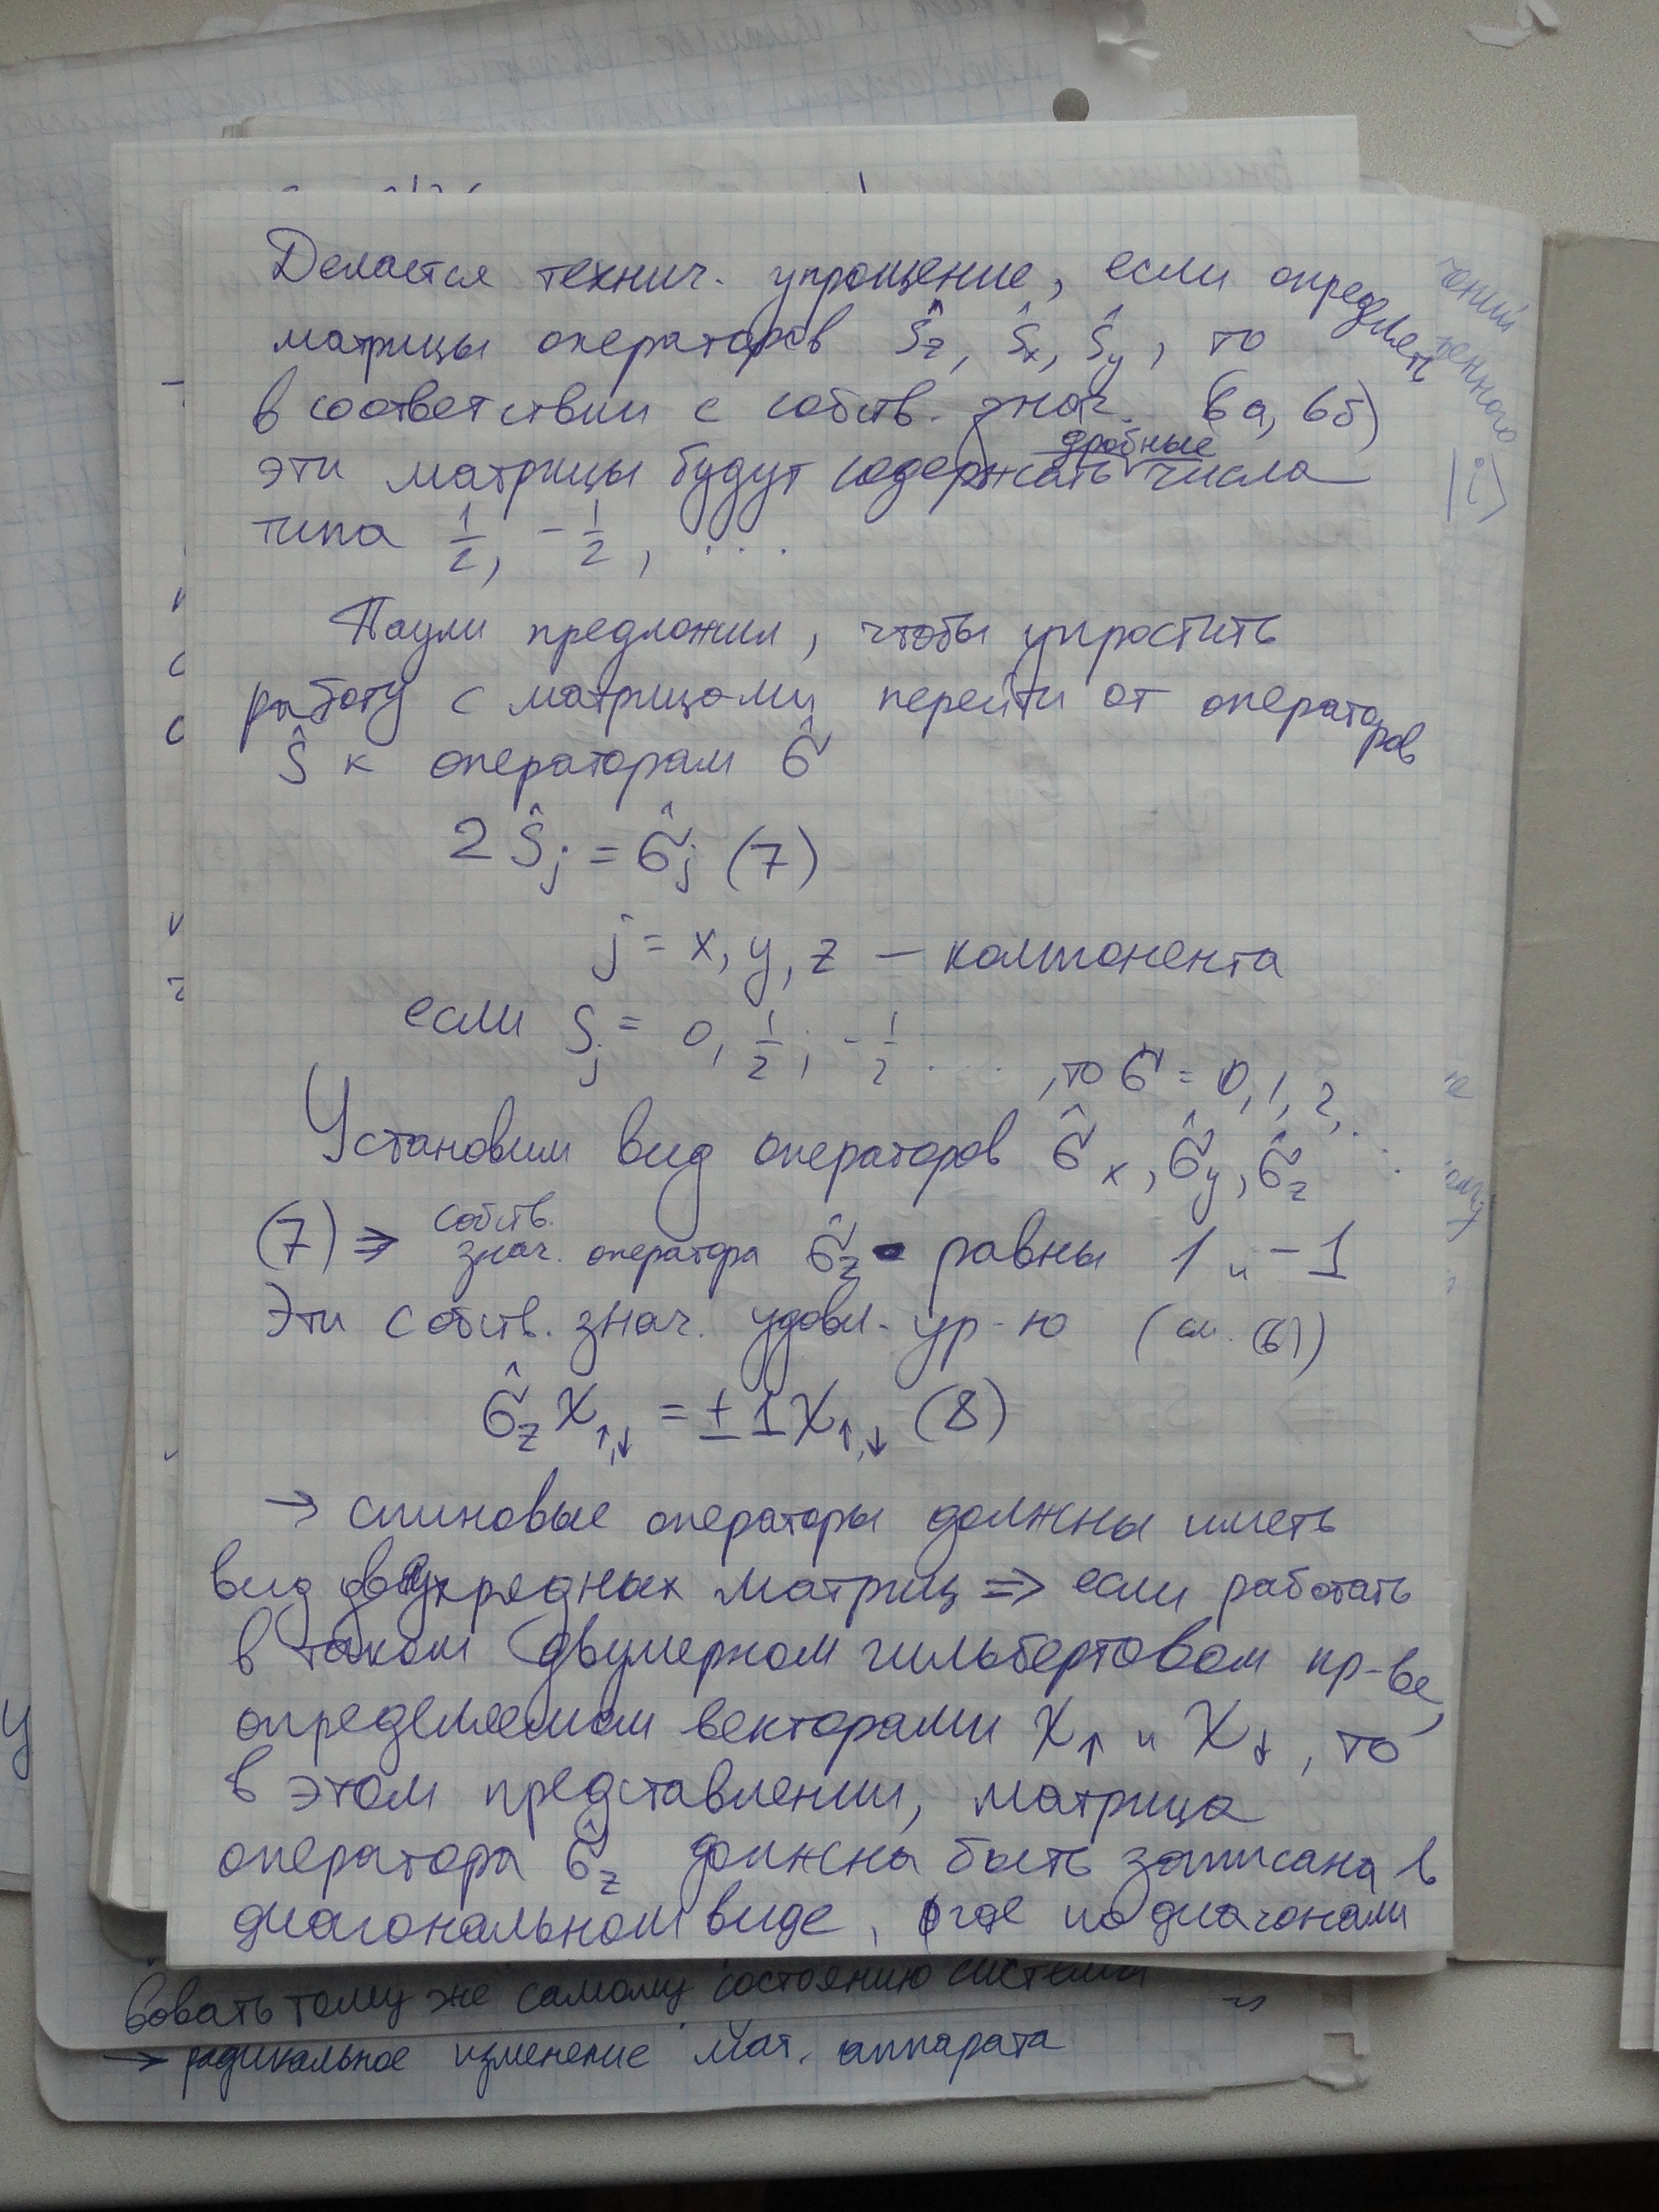 Делается технич. упрощение, если определить
матрицы операторов Ŝz, Ŝx, Ŝy, то
в соответствии с собств. знач. (6а, 6б)
эти матрицы будут содержать дробные числа
типа 1/2, -1/2, ...
Паули предложил, чтобы упростить
работу с матрицами перейти от операторов
Ŝ к операторам σ̂
2Ŝj = σ̂j (7)
j = x, y, z — компонента
если Sj = 0, 1/2, -1/2 ...., то σ = 0, 1, 2, ...
Установим вид операторов σ̂x, σ̂y, σ̂z
(7) ⇒ собств. знач. оператора σ̂z равны 1 и -1
Эти собств. знач. удовл. ур-ю (см. (6))
σ̂z χ↑,↓ = ±1 χ↑,↓ (8)
→ спиновые операторы должны иметь
вид двухрядных матриц ⇒ если работать
в таком двумерном гильбертовом пр-ве,
определяемом векторами χ↑ и χ↓, то
в этом представлении, матрица
оператора σ̂z должна быть записана в
диагональном виде, где по диагонали
вовать тому же самому состоянию системы
→ радикальное изменение мат. аппарата